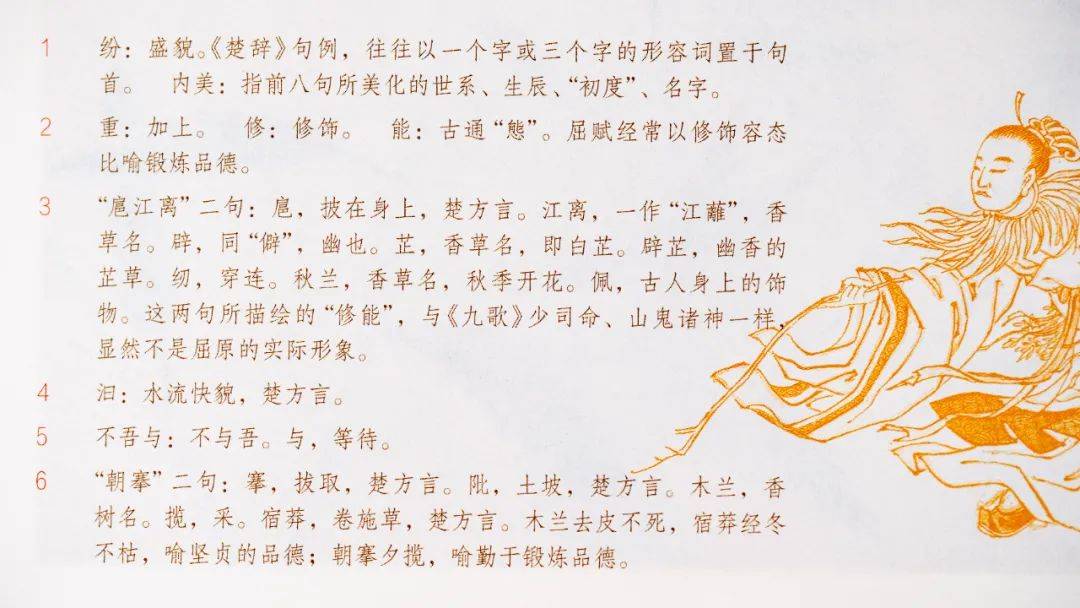 1 纷：盛貌。《楚辞》句例，往往以一个字或三个字的形容词置于句
首。 内美：指前八句所美化的世系、生辰、“初度”、名字。
2 重：加上。 修：修饰。 能：古通“態”。屈赋经常以修饰容态
比喻锻炼品德。
3 “扈江离”二句：扈，披在身上，楚方言。江离，一作“江蓠”，香
草名。辟，同“僻”，幽也。芷，香草名，即白芷。辟芷，幽香的
芷草。纫，穿连。秋兰，香草名，秋季开花。佩，古人身上的饰
物。这两句所描绘的“修能”，与《九歌》少司命、山鬼诸神一样，
显然不是屈原的实际形象。
4 汩：水流快貌，楚方言。
5 不吾与：不与吾。与，等待。
6 “朝搴”二句：搴，拔取，楚方言。阰，土坡，楚方言。木兰，香
树名。揽，采。宿莽，卷施草，楚方言。木兰去皮不死，宿莽经冬
不枯，喻坚贞的品德；朝搴夕揽，喻勤于锻炼品德。